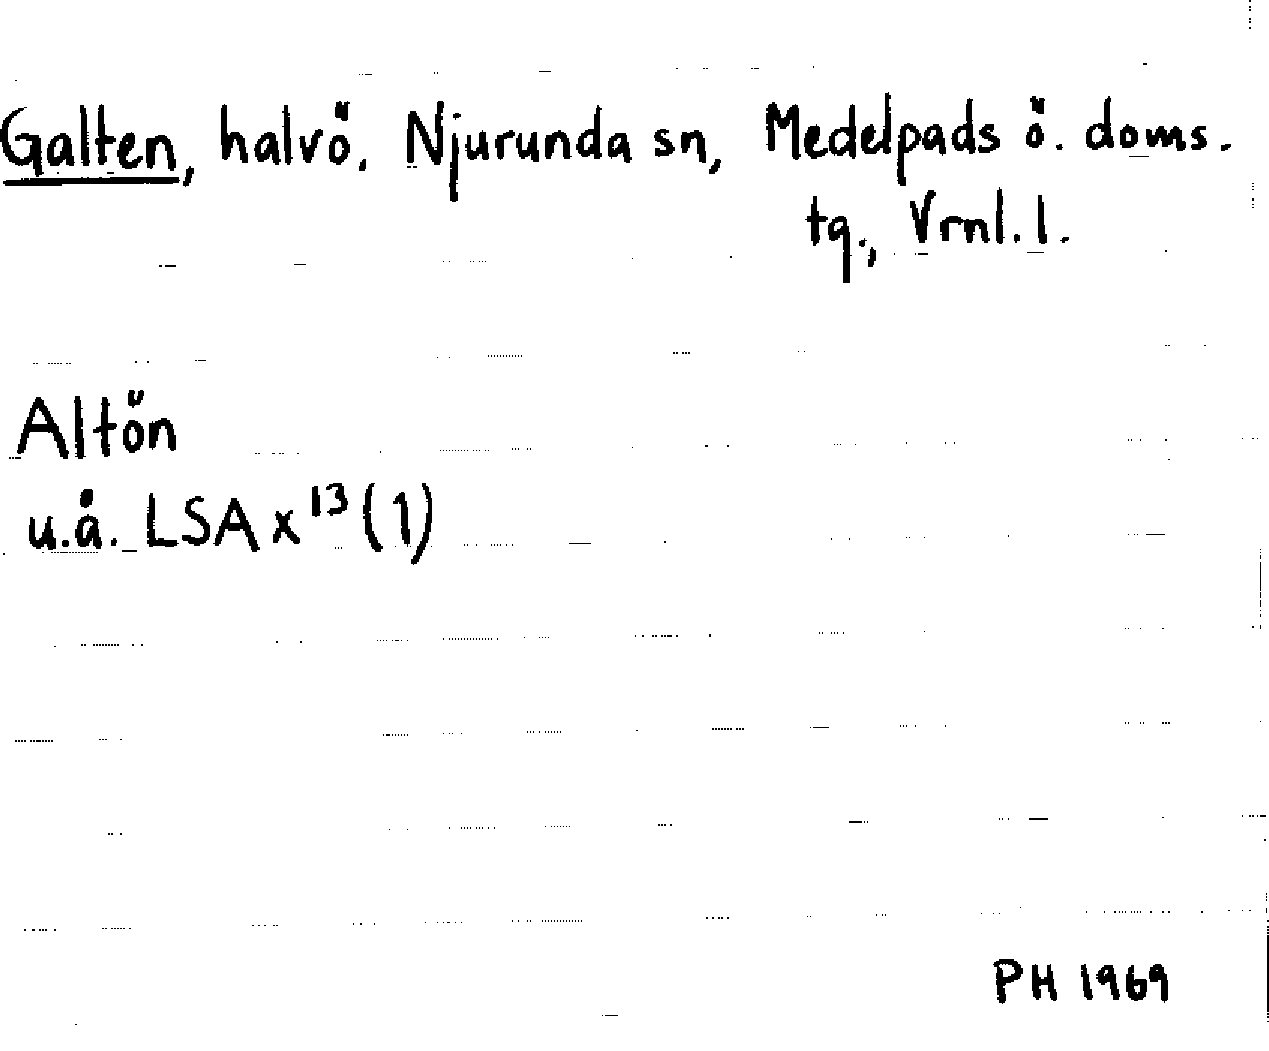 Galten, halvö, Njurunda sn, Medelpads ö. doms.
tg., Vrnl. l.
Altön
u.å. LSA x¹³ (1)
PH 1969